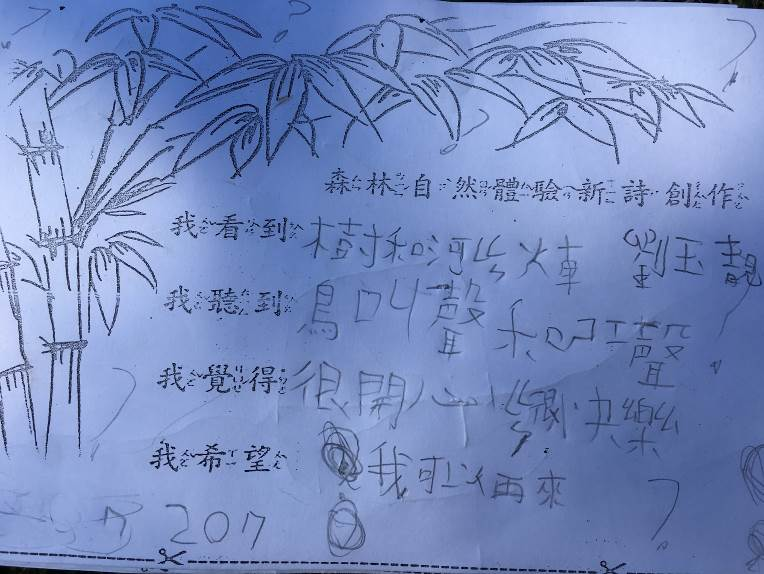 森林自然體驗新詩創作
我看到樹和 火車 劉玉靚
我聽到鳥叫聲和 聲
我覺得很開心 很快樂
我希望我可以再來
207